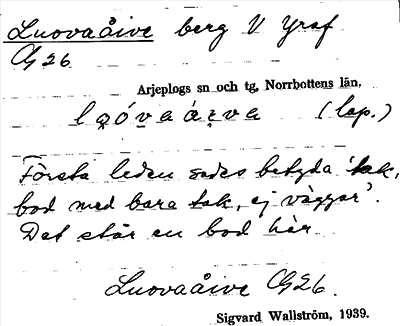 Luovaåive berg V Yraf
G 26
Arjeplogs sn och tg, Norrbottens län.
(lap.)
Första leden sades betyda 'tak,
bod med bara tak, ej väggar'.
Det står en bod här.
Luovaåive G 26.
Sigvard Wallström, 1939.